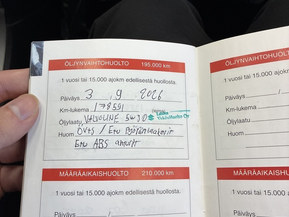 ÖLJYNVAIHTOHUOLTO 195.000 km
1 vuosi tai 15.000 ajokm edellisestä huollosta.
Päiväys 3.9 2026
Km-lukema 178591
Öljylaatu VALVOLINE 5W30
Huom Öljy / Etu
Etu ABS anturit
MÄÄRÄAIKAISHUOLTO 210.000 km
1 vuosi tai 15.000 ajokm edellisestä huollosta.
Päiväys
ÖLJYNVAIHTO
1 vuosi tai 15.000 ajokm
Päiväys
Km-lukema
Öljylaatu
Huom
MÄÄRÄAIKAISH
1 vuosi tai 15.000 ajokm
Päiväys